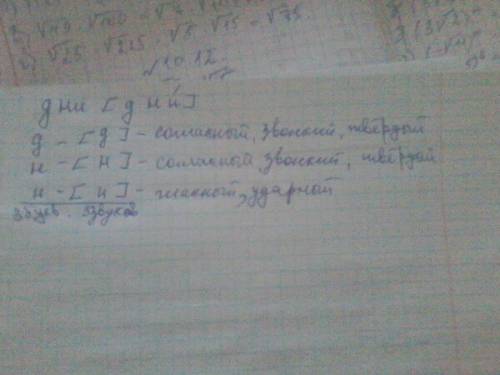 √25 · √225 √5 √15 = √75
√10.12
дни [д н и́]
д – [д] – согласный, звонкий, твёрдый
н – [н] – согласный, звонкий, твёрдый
и – [и] – гласный, ударный
3 букв. 3 звуков